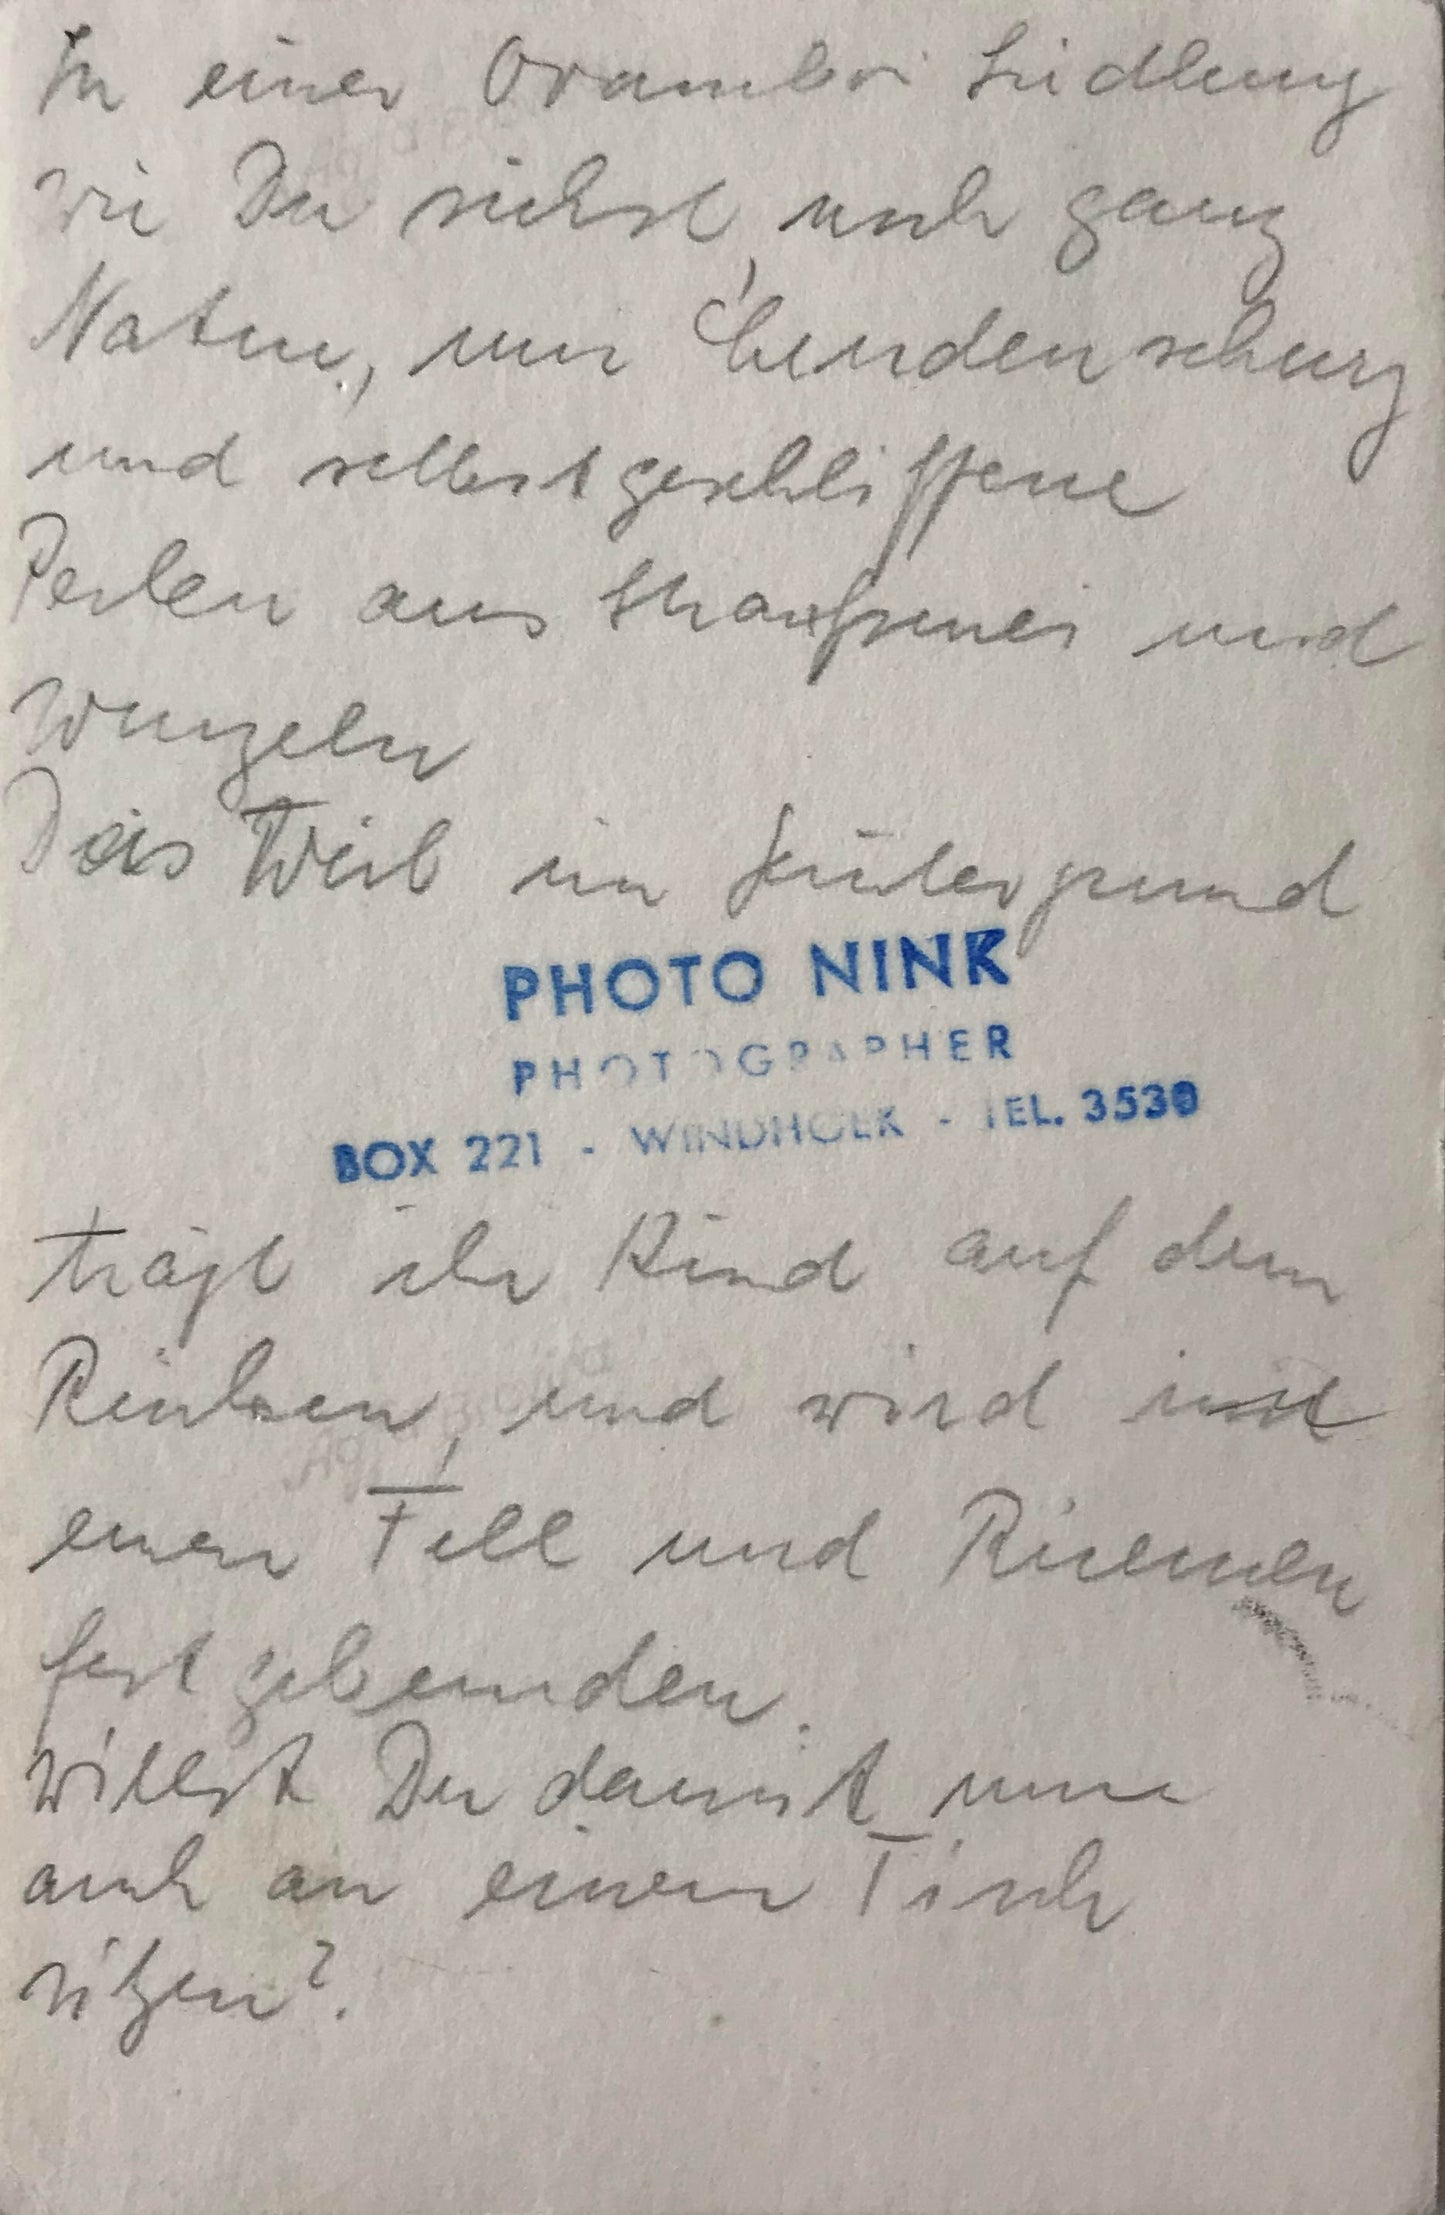 In einer Ovambo Siedlung
wie Du siehst, noch ganz
Natur, nur Lendenschurz
und selbstgeschliffene
Perlen aus Straußenei und
Wurzeln
Das Weib im Hintergrund
PHOTO NINK
PHOTOGRAPHER
BOX 221 - WINDHOEK - TEL. 3530
trägt ihr Kind auf dem
Rücken, und wird mit
einem Fell und Riemen
festgebunden.
Willst Du damit nun
auch an einem Tisch
sitzen?.